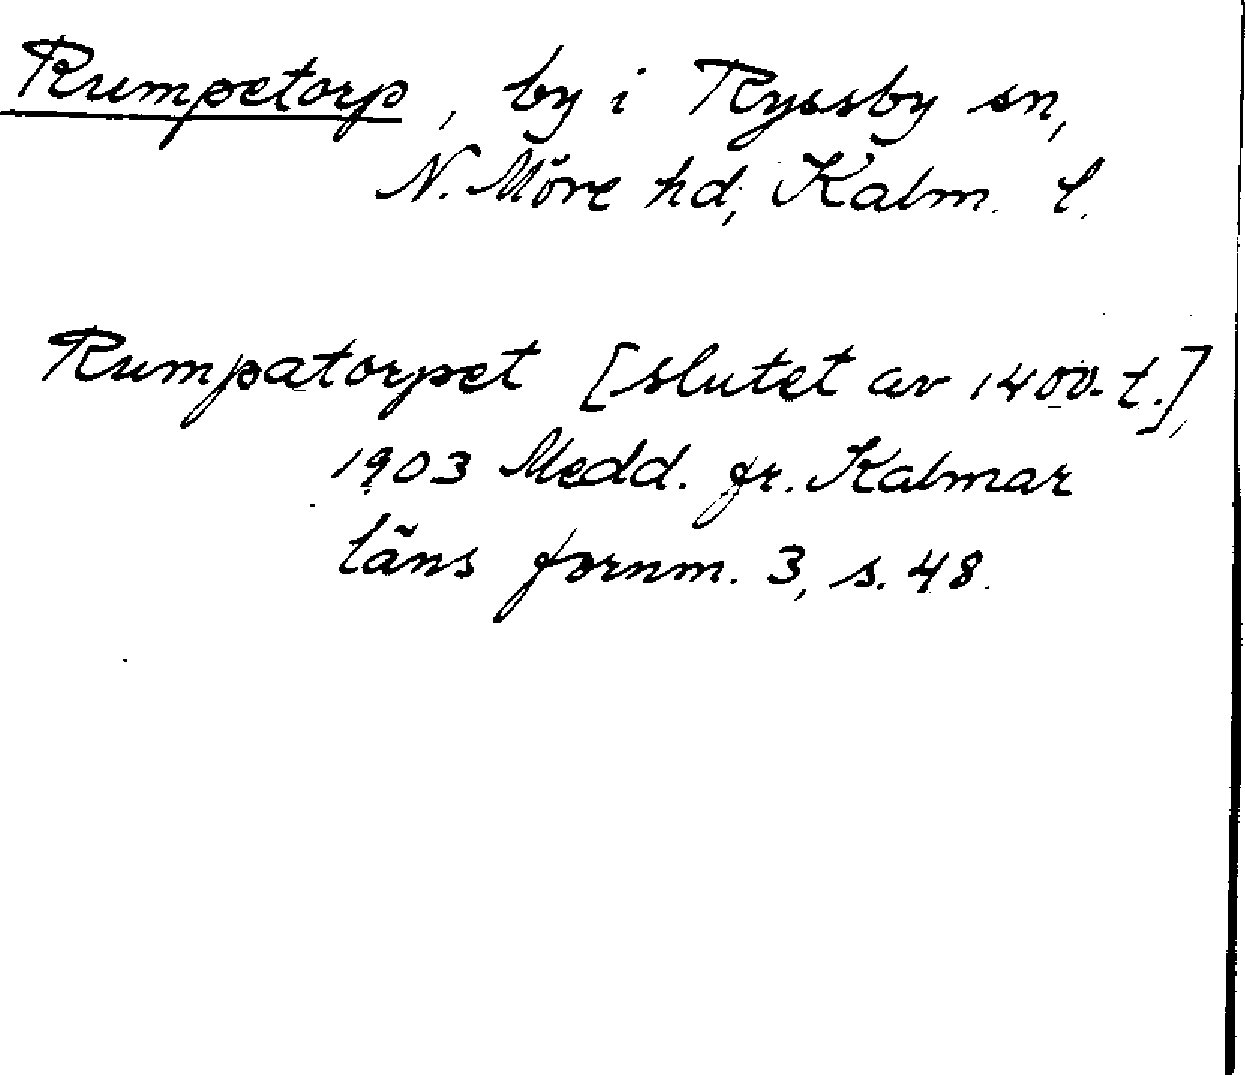 Rumpetorp, by i Ryssby sn,
N. Möre hd, Kalm. l.
Rumpatorpet [slutet av 1400-t.],
1903 Medd. fr. Kalmar
läns fornm. 3, s. 48.